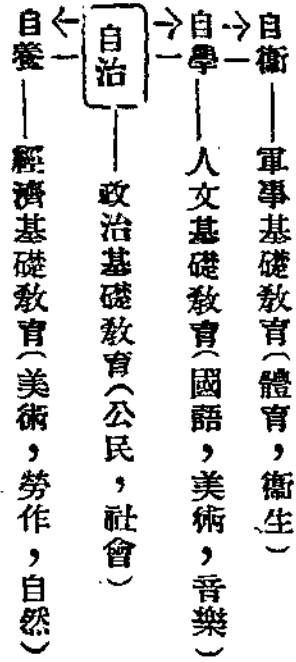 自衞——軍事基礎教育（體育，衞生）
自學——人文基礎教育（國語，美術，音樂）
自治——政治基礎教育（公民，社會）
自養——經濟基礎教育（美術，勞作，自然）